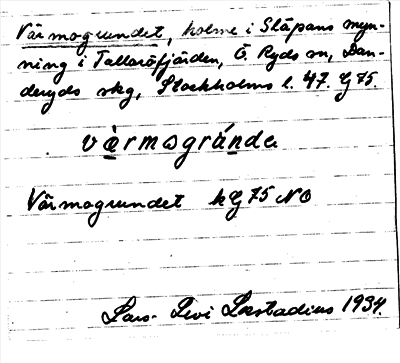 Värmogrundet, holme i Släpans myn-
ning i Tallaröfjärden, Ö. Ryds sn, Dan-
deryds skg, Stockholms l. 47. G 75.
värmogrúnde
Värmogrundet kG 75 NO
Lars-Levi Læstadius 1934.